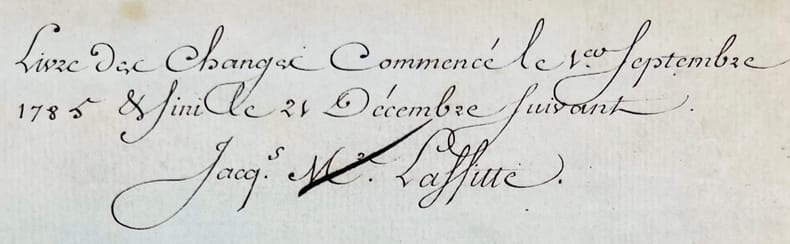 Livre des Changes Commencé le 1.er Septembre
1785 & fini le 21 Décembre suivant.
Jacq.s M.r Laffitte.